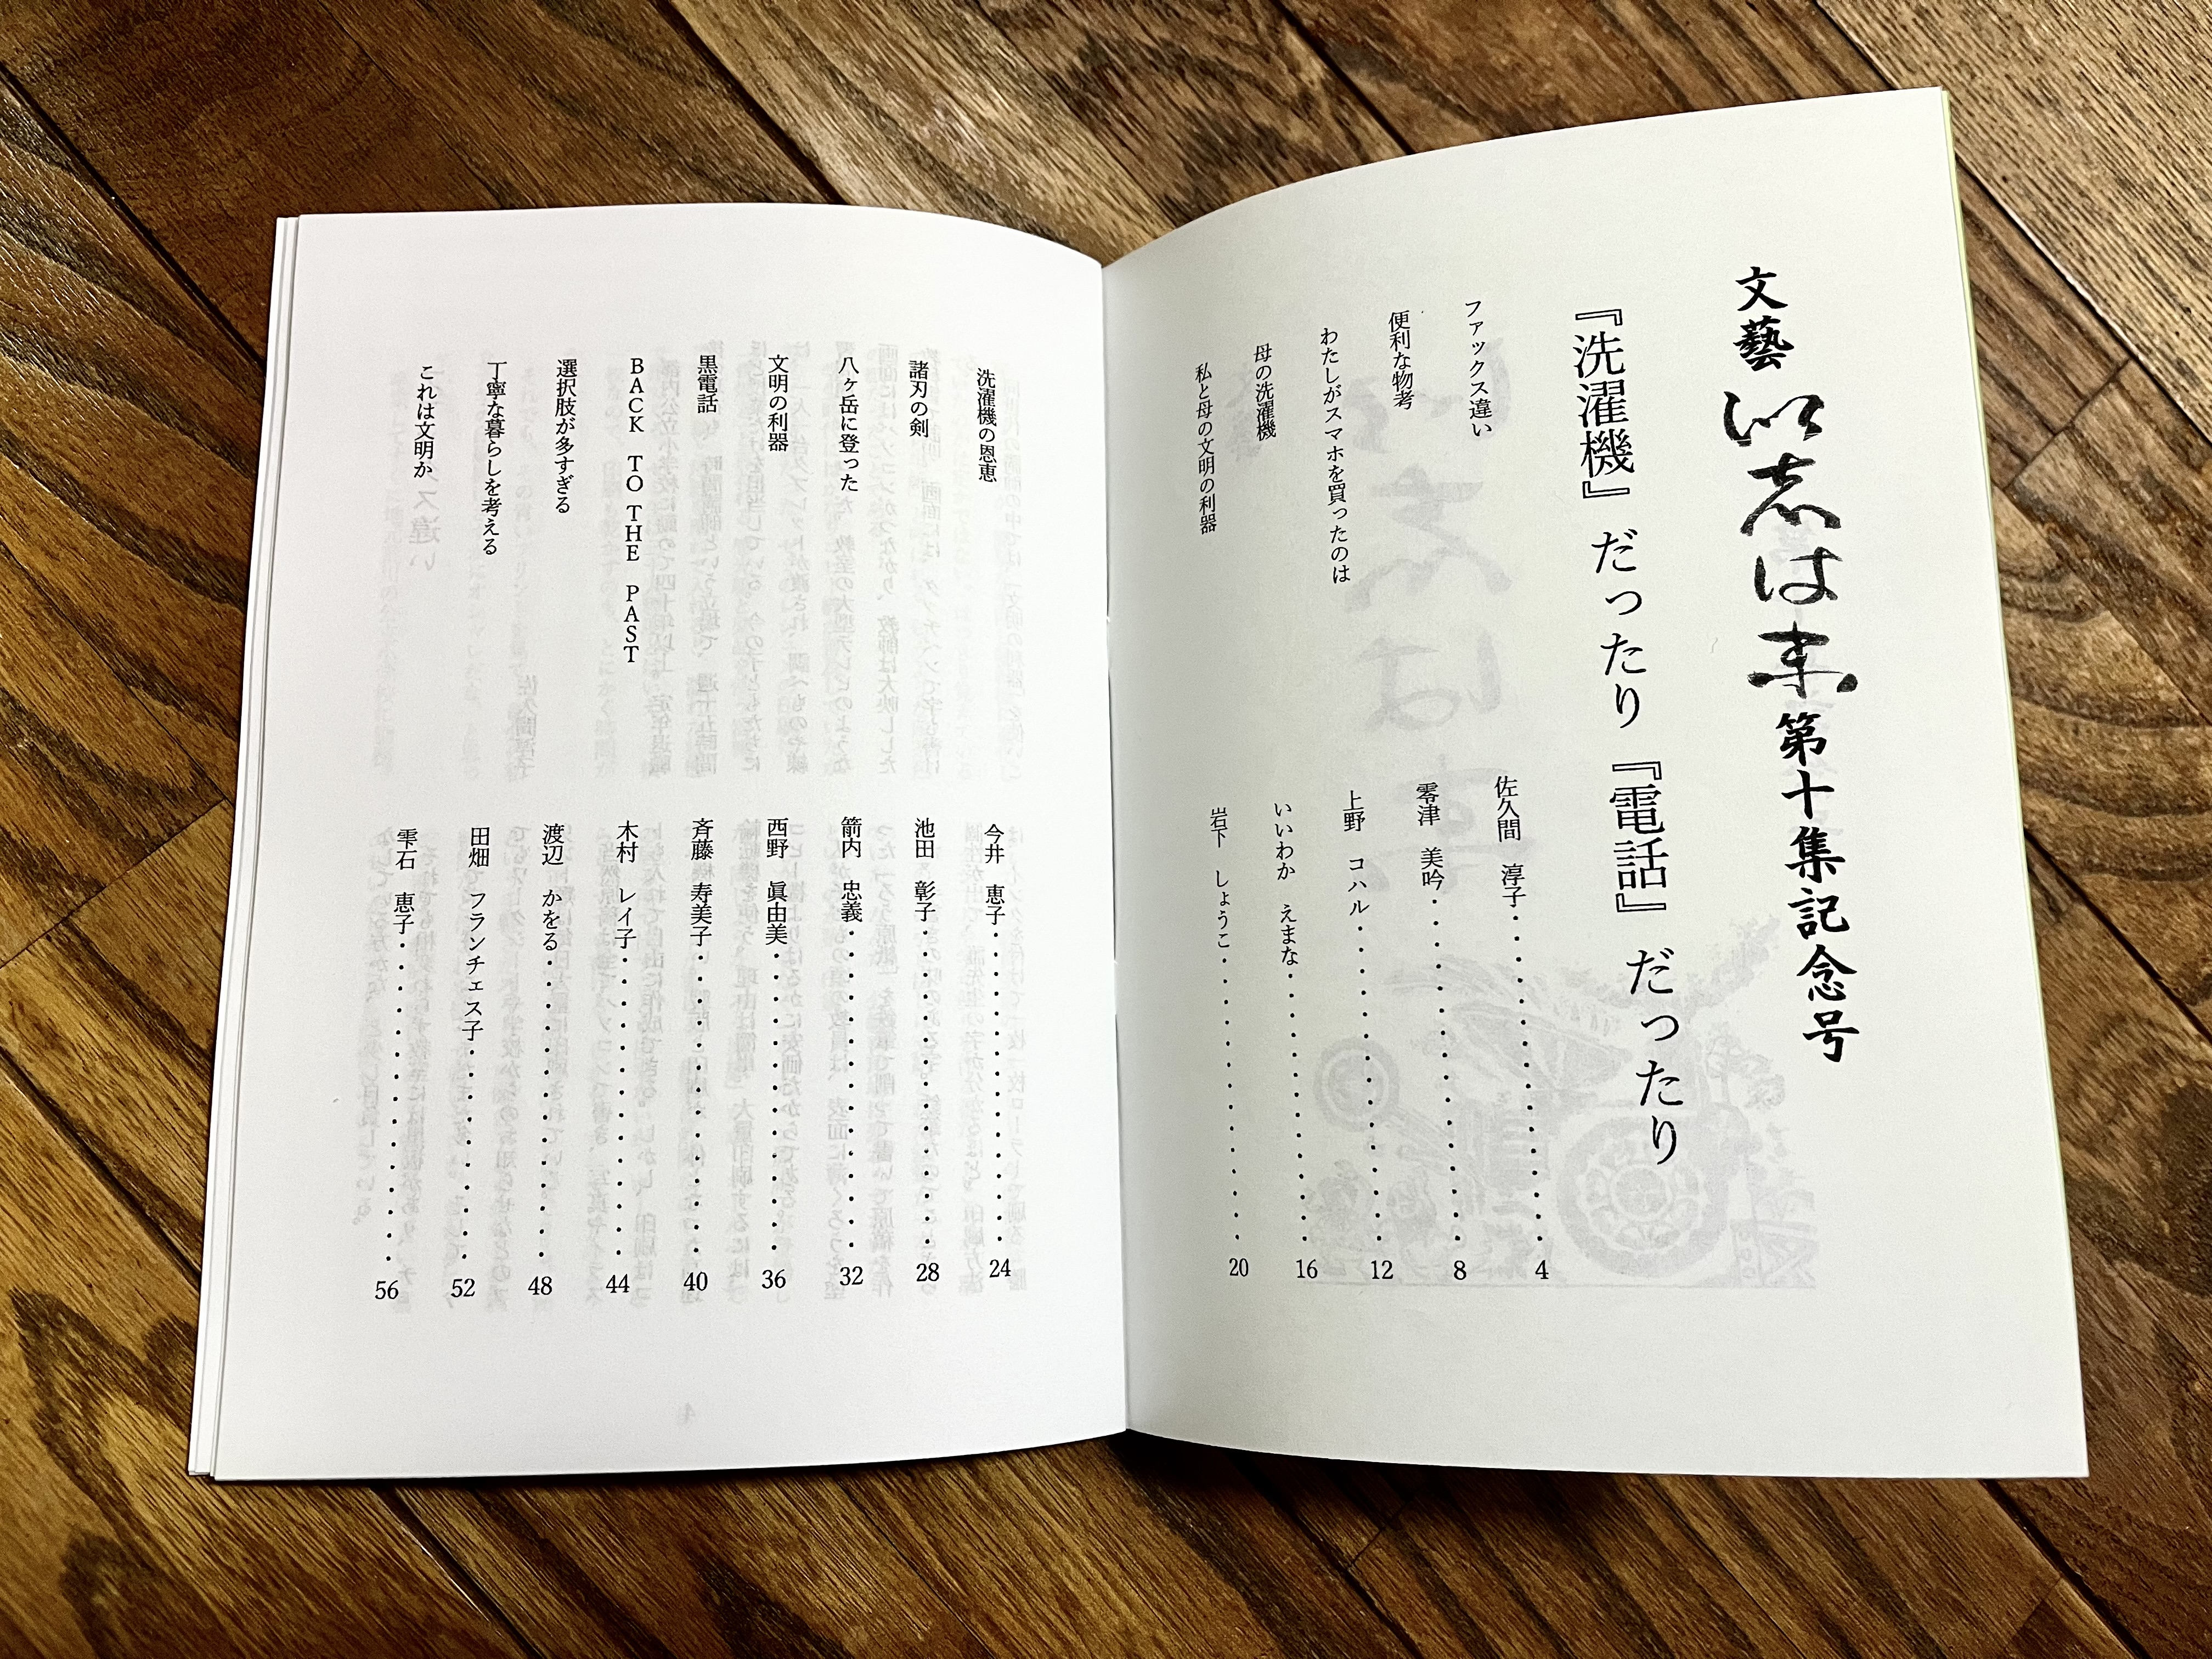 文藝 いしは末 第十集記念号
『洗濯機』だったり『電話』だったり
ファックス違い 佐久間 淳子・・・・・・・・・・・・・・・・ 4
便利な物考 零津 美吟・・・・・・・・・・・・・・・・ 8
わたしがスマホを買ったのは 上野 コハル・・・・・・・・・・・・・・・・ 12
母の洗濯機 いいわか えまな・・・・・・・・・・・・・ 16
私と母の文明の利器 岩下 しょうこ・・・・・・・・・・・・・・ 20
洗濯機の恩恵 今井 恵子・・・・・・・・・・・・・・・・ 24
諸刃の剣 池田 彰子・・・・・・・・・・・・・・・・ 28
八ヶ岳に登った 箭内 忠義・・・・・・・・・・・・・・・・ 32
文明の利器 西野 眞由美・・・・・・・・・・・・・・・ 36
黒電話 斉藤 寿美子・・・・・・・・・・・・・・・ 40
BACK TO THE PAST 木村 レイ子・・・・・・・・・・・・・・・ 44
選択肢が多すぎる 渡辺 かをる・・・・・・・・・・・・・・・ 48
丁寧な暮らしを考える 田畑 フランチェス子・・・・・・・・・・ 52
これは文明か 雫石 恵子・・・・・・・・・・・・・・・・ 56